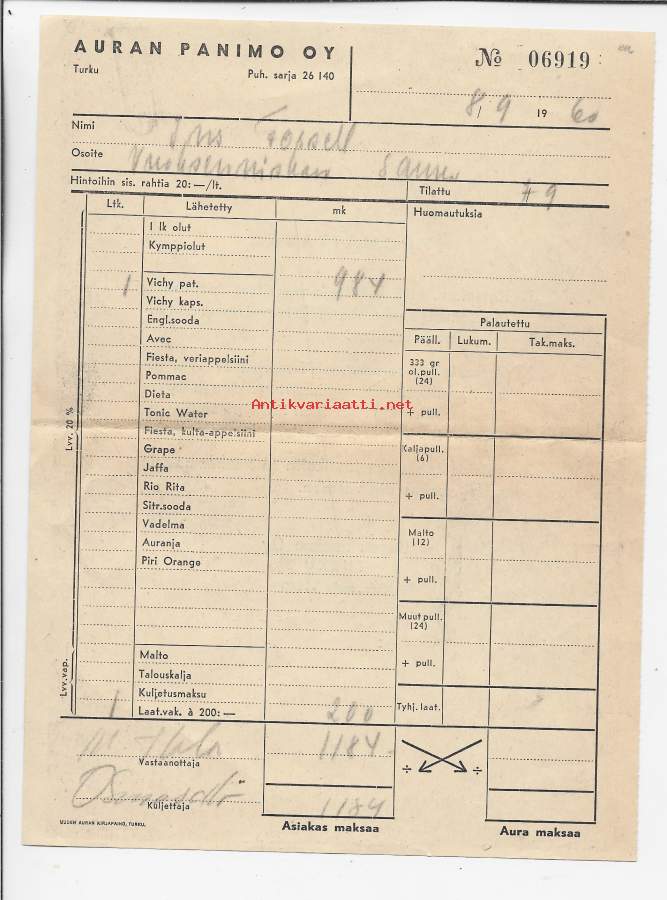 AURAN PANIMO OY
Turku Puh. sarja 26 140
№ 06919
8/9 19 60
Nimi
Osoite
Hintoihin sis. rahtia 20:—/lt.
Tilattu
Ltk. Lähetetty mk
Huomautuksia
I lk olut
Kymppiolut
1 Vichy pat. 984
Vichy kaps.
Engl.sooda
Avec
Fiesta, veriappelsiini
Pommac
Dieta
Tonic Water
Fiesta, kulta-appelsiini
Grape
Jaffa
Rio Rita
Sitr.sooda
Vadelma
Auranja
Piri Orange
Malto
Talouskalja
Kuljetusmaksu
1 Laat.vak. à 200:— 200
Lvv. 20 %
Lvv.vap.
Palautettu
Pääll. Lukum. Tak.maks.
333 gr
ol.pull.
(24)
+ pull.
Kaljapull.
(6)
+ pull.
Malto
(12)
+ pull.
Muut pull.
(24)
+ pull.
Tyhj. laat.
1184
Vastaanottaja
÷ ÷
1184
Kuljettaja
Asiakas maksaa
Aura maksaa
UUDEN AURAN KIRJAPAINO, TURKU.
Antikvariaatti.net